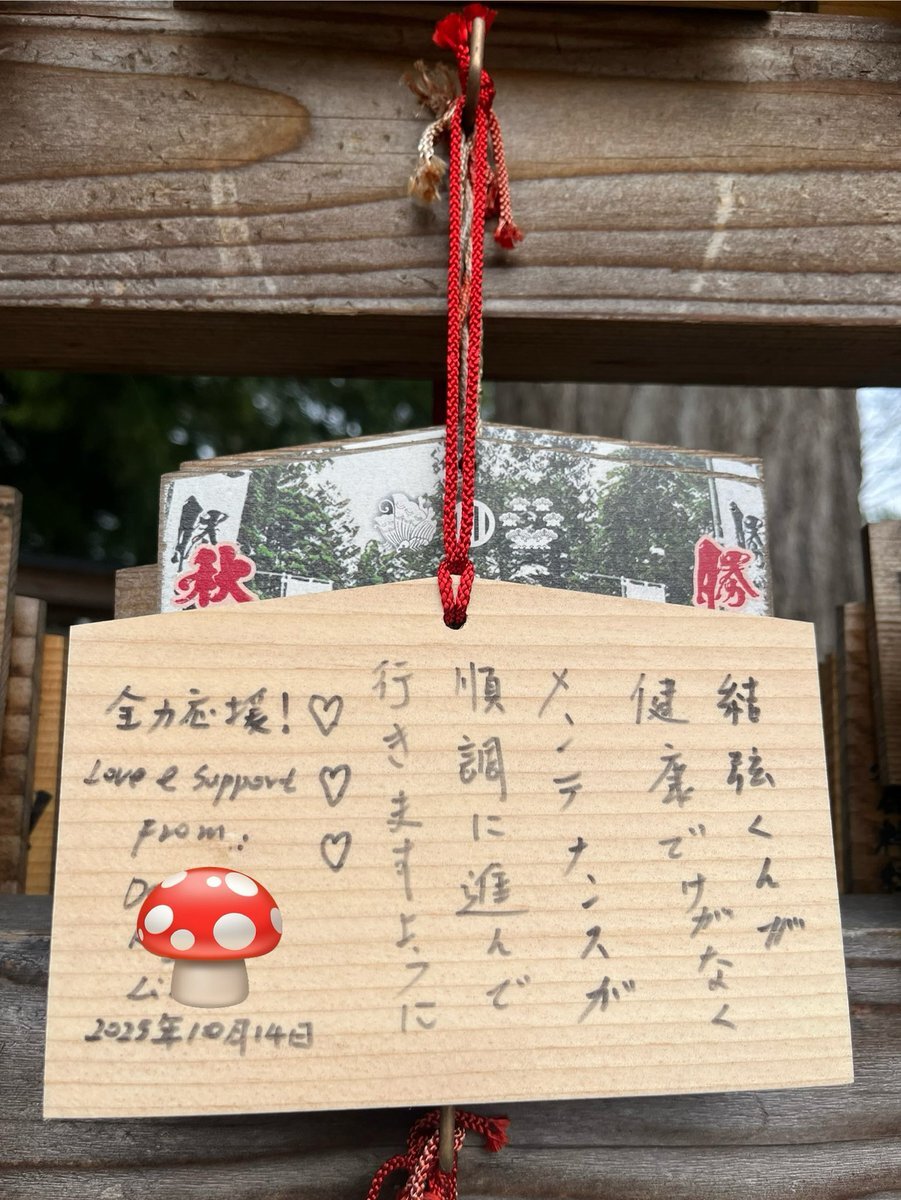 結弦くんが
健康でけがなく
メンテナンスが
順調に進んで
行きますように
全力応援！♡
Love & Support ♡
From: ♡
2025年10月14日
秋
勝